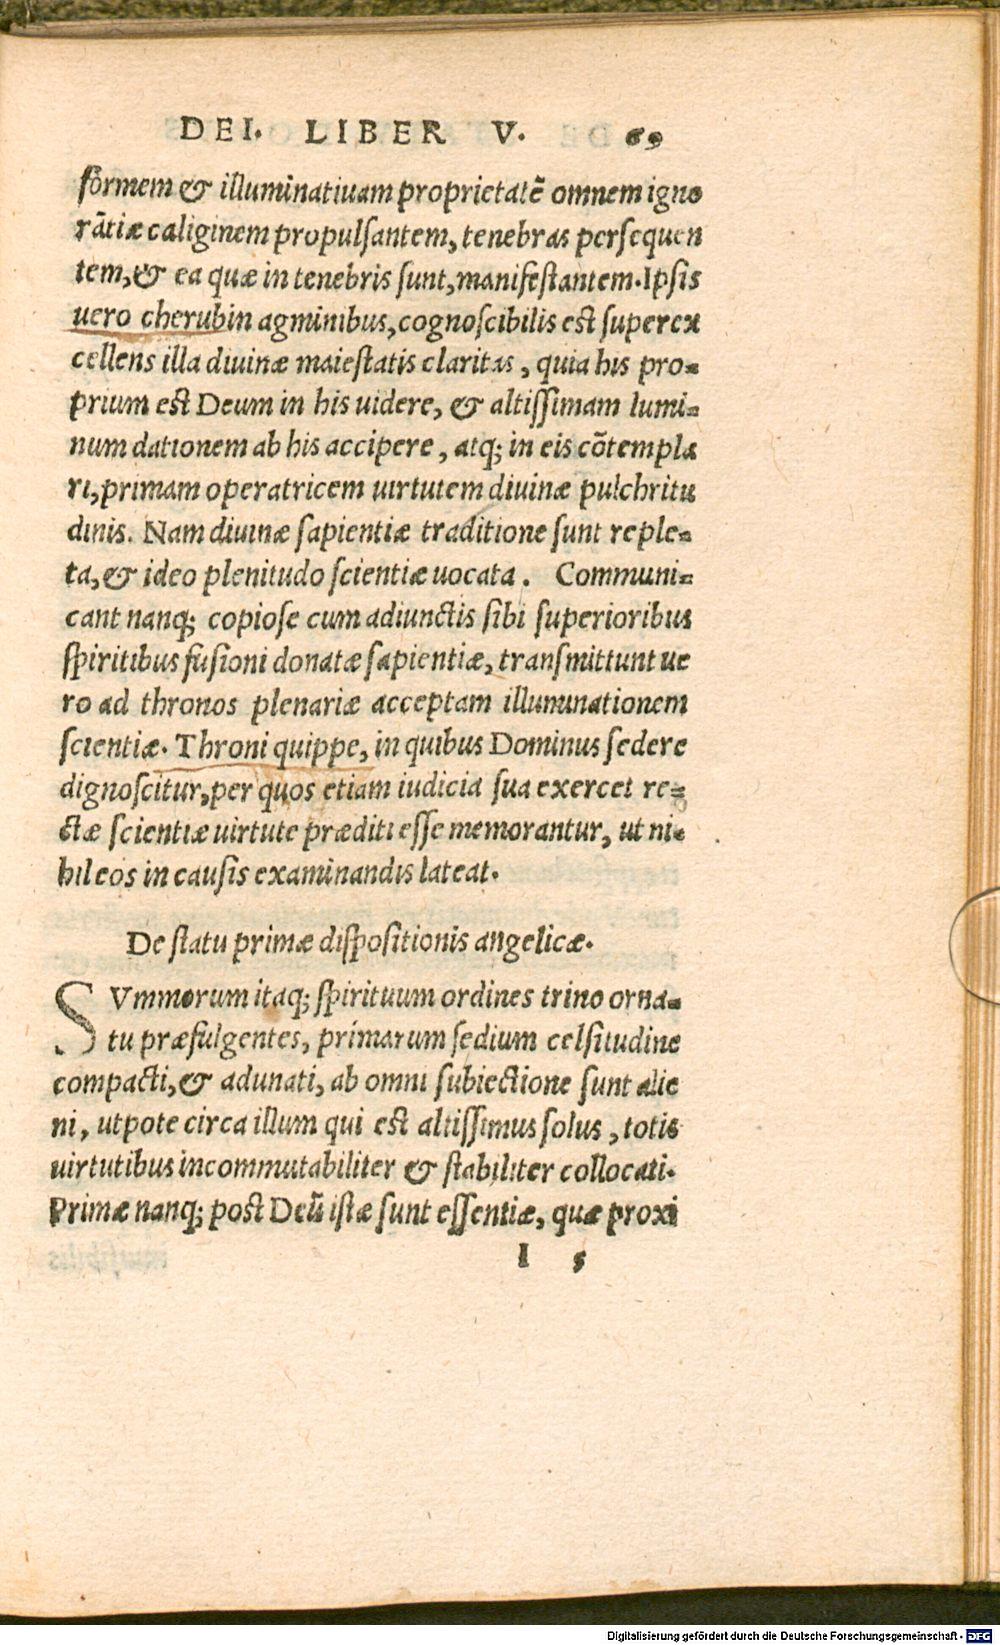 DEI. LIBER V. 69
formem & illuminatiuam proprietatē omnem igno
rātiæ caliginem propulsantem, tenebras persequen
tem, & ea quæ in tenebris sunt, manifestantem. Ipsis
uero cherubin agminibus, cognoscibilis est superex
cellens illa diuinæ maiestatis claritas, quia his pro-
prium est Deum in his uidere, & altissimam lumi-
num dationem ab his accipere, atq; in eis cōtempla
ri, primam operatricem uirtutem diuinæ pulchritu
dinis. Nam diuinæ sapientiæ traditione sunt reple-
ta, & ideo plenitudo scientiæ uocata. Communi-
cant nanq; copiose cum adiunctis sibi superioribus
spiritibus fusioni donatæ sapientiæ, transmittunt ue
ro ad thronos plenariæ acceptam illuminationem
scientiæ. Throni quippe, in quibus Dominus sedere
dignoscitur, per quos etiam iudicia sua exercet re-
ctæ scientiæ uirtute præditi esse memorantur, ut ni-
hil eos in causis examinandis lateat.
De statu primæ dispositionis angelicæ.
SVmmorum itaq; spirituum ordines trino orna-
tu præfulgentes, primarum sedium celsitudine
compacti, & adunati, ab omni subiectione sunt alie
ni, utpote circa illum qui est altissimus solus, totis
uirtutibus incommutabiliter & stabiliter collocati.
Primæ nanq; post Deū istæ sunt essentiæ, quæ proxi
I 5
Digitalisierung gefördert durch die Deutsche Forschungsgemeinschaft - DFG